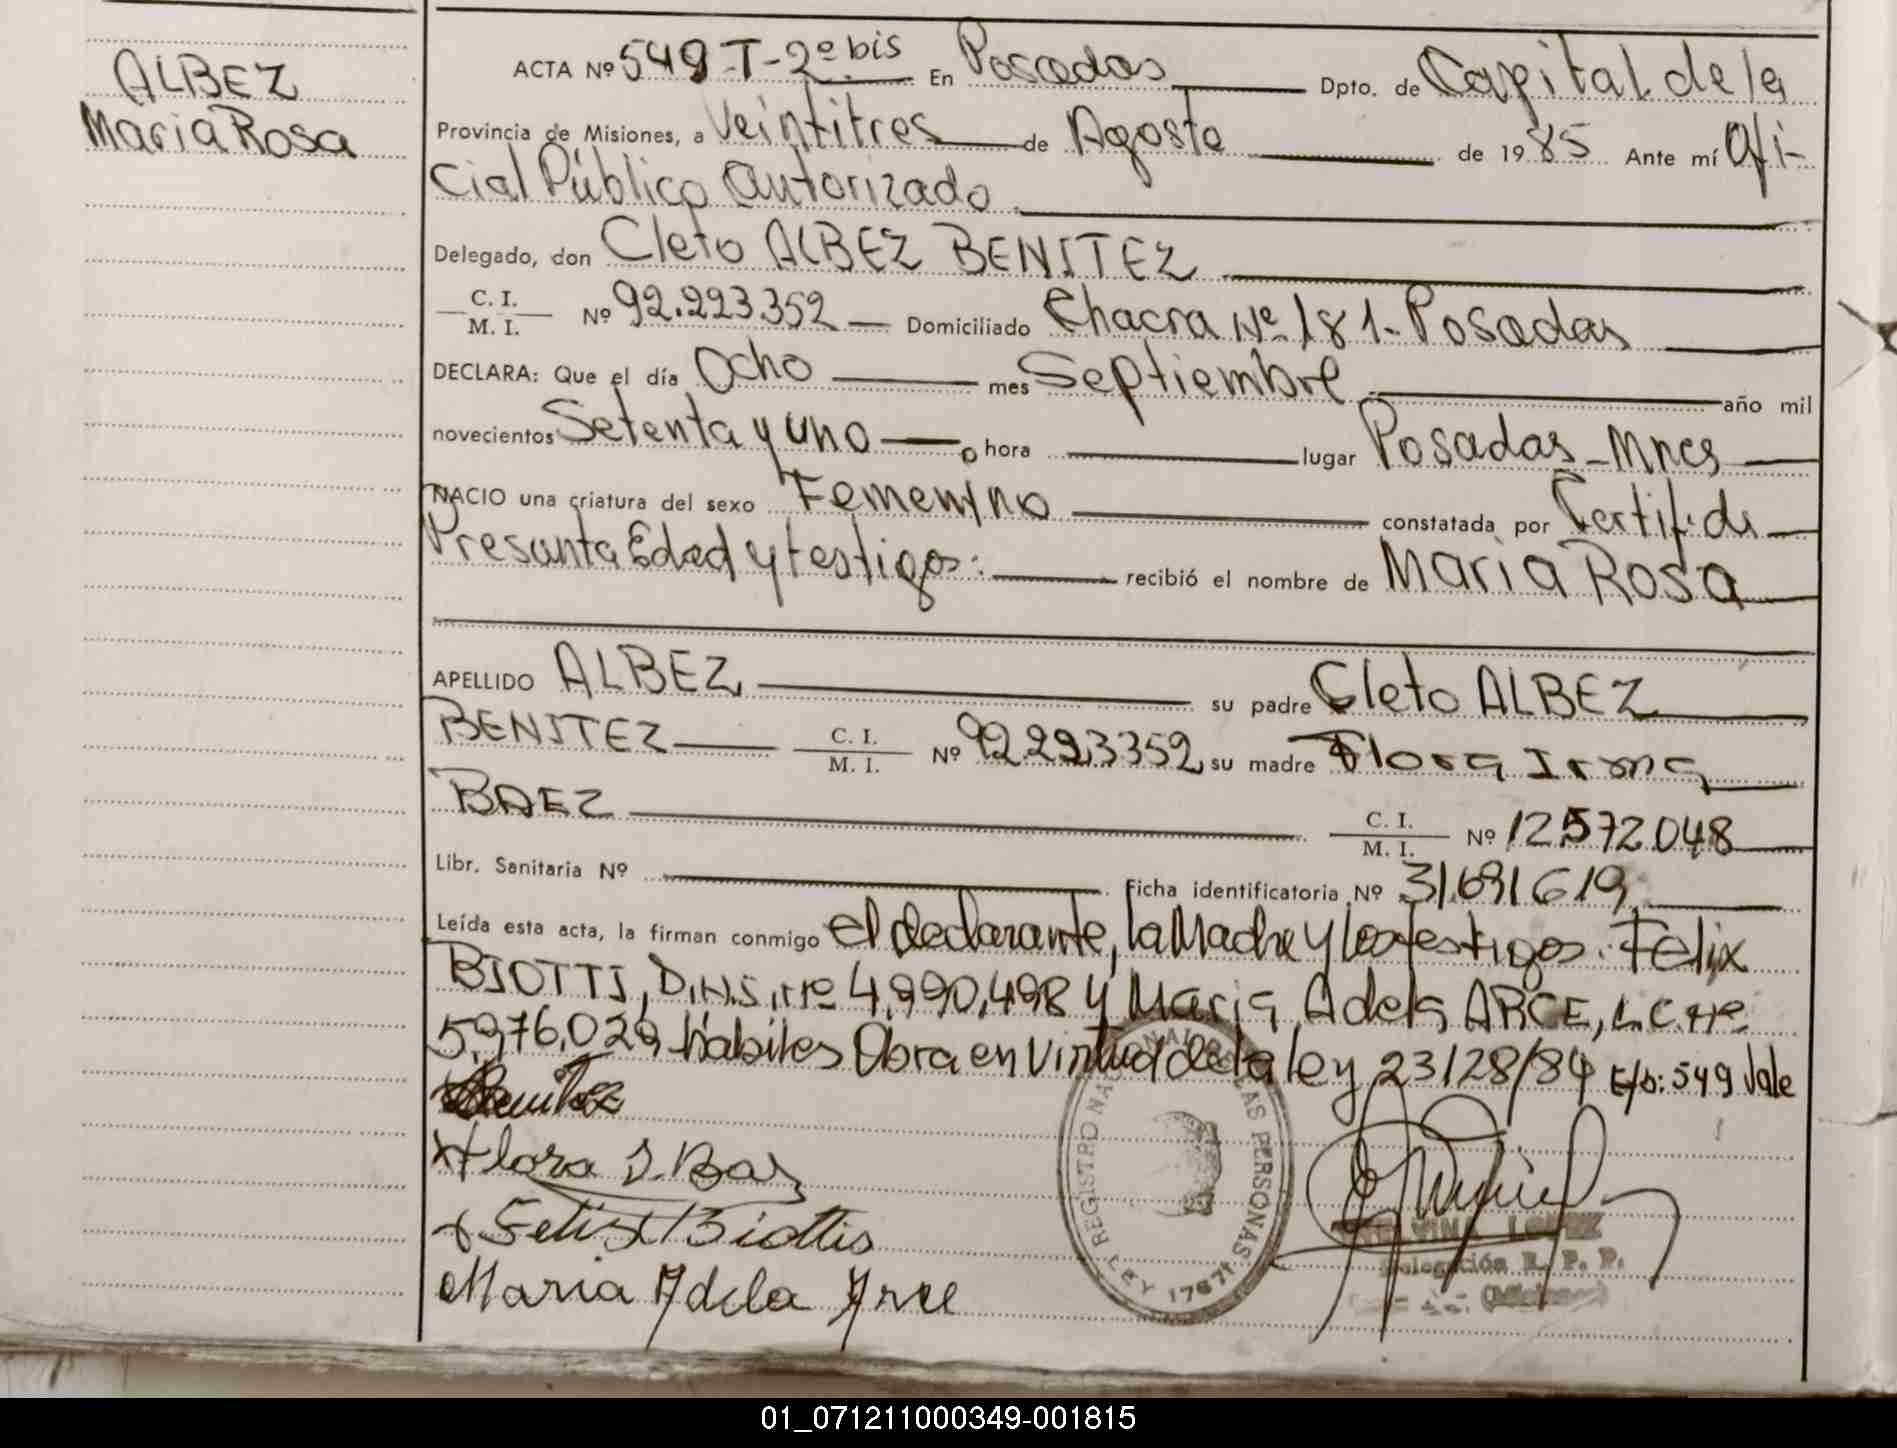 ALBEZ
Maria Rosa
ACTA Nº 549-T-2º bis En Posadas Dpto. de Capital de la
Provincia de Misiones, a Veintitres de Agosto de 1985 Ante mí Ofi-
cial Público Autorizado
Delegado, don Cleto ALBEZ BENITEZ
C. I.
M. I. Nº 92.223.352 Domiciliado Chacra Nº 181-Posadas
DECLARA: Que el día Ocho mes Septiembre año mil
novecientos Setenta y uno hora lugar Posadas-Mnes
NACIO una criatura del sexo Femenino constatada por Certif. de
Presunta Edad y testigos: recibió el nombre de Maria Rosa
APELLIDO ALBEZ su padre Cleto ALBEZ
BENITEZ C. I.
M. I. Nº 92.223352 su madre Flora Irma
BAEZ C. I.
M. I. Nº 12572048
Libr. Sanitaria Nº Ficha identificatoria Nº 31.691619
Leída esta acta, la firman conmigo el declarante, la Madre y los testigos: Felix
BIOTTI, D.N.I. Nº 4,990,498 y Maria Adela ARCE, L.C. Nº
5,976,029 hábiles Obra en virtud de la ley 23128/84 E/s: 549 Vale
Flora I. Baez
x Felix Biottis
Maria Adela Arce
REGISTRO NACIONAL DE LAS PERSONAS
LEY 17671
LOPEZ
Delegación R. P. P.
(Misiones)
01_071211000349-001815